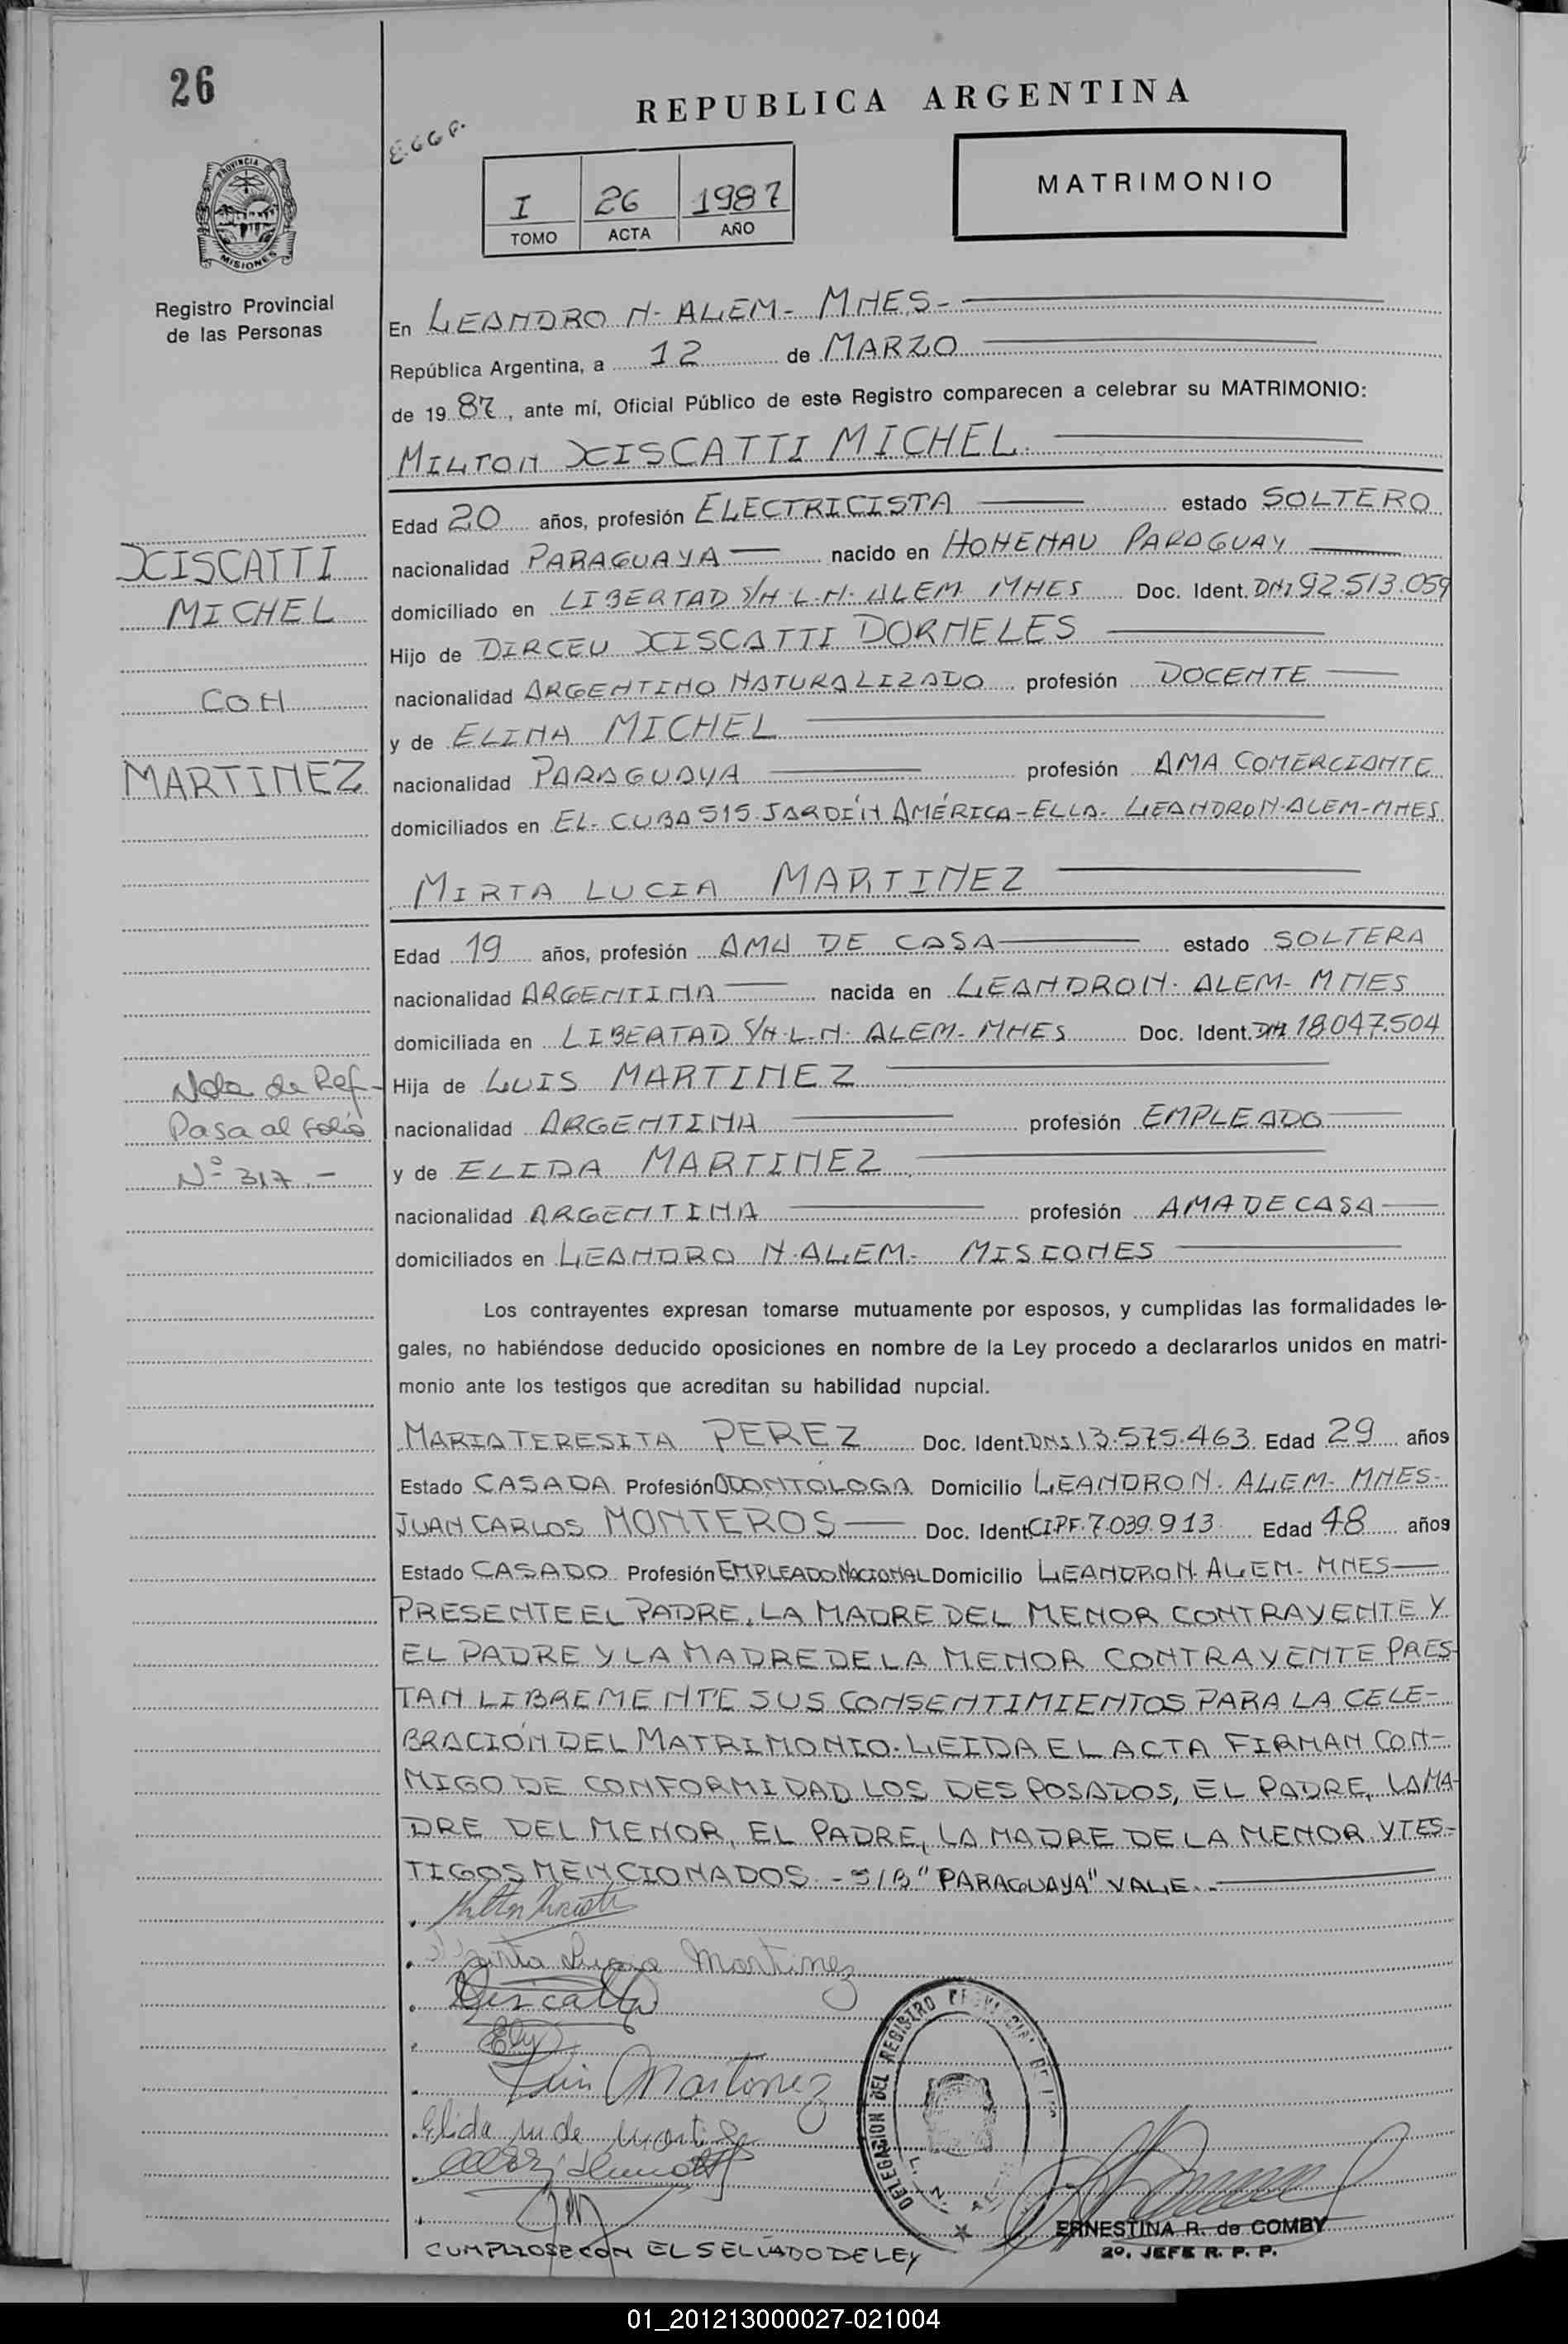 26
REPUBLICA ARGENTINA
PROVINCIA DE
MISIONES
I 26 1987
TOMO ACTA AÑO
MATRIMONIO
Registro Provincial
de las Personas
En LEANDRO N. ALEM - MNES -
República Argentina, a 12 de MARZO
de 19 87, ante mí, Oficial Público de este Registro comparecen a celebrar su MATRIMONIO:
MILTON XISCATTI MICHEL.
Edad 20 años, profesión ELECTRICISTA estado SOLTERO
XISCATTI
nacionalidad PARAGUAYA nacido en HOHENAU PARAGUAY
MICHEL
domiciliado en LIBERTAD S/N. L. N. ALEM MNES Doc. Ident. DNI 92.513.059
Hijo de DIRCEU XISCATTI DORNELES
CON
nacionalidad ARGENTINO NATURALIZADO profesión DOCENTE
y de ELINA MICHEL
MARTINEZ
nacionalidad PARAGUAYA profesión AMA COMERCIANTE
domiciliados en EL- CUBA 515. JARDÍN AMÉRICA - ELLA. LEANDRO N. ALEM - MNES
MIRTA LUCIA MARTINEZ
Edad 19 años, profesión AMA DE CASA estado SOLTERA
nacionalidad ARGENTINA nacida en LEANDRO N. ALEM - MNES
domiciliada en LIBERTAD S/N. L. N. ALEM - MNES Doc. Ident. DNI 18.047.504
Nota de Ref -
Hija de LUIS MARTINEZ
Pasa al folio
nacionalidad ARGENTINA profesión EMPLEADO
Nº 317.-
y de ELIDA MARTINEZ
nacionalidad ARGENTINA profesión AMA DE CASA
domiciliados en LEANDRO N. ALEM - MISIONES
Los contrayentes expresan tomarse mutuamente por esposos, y cumplidas las formalidades le-
gales, no habiéndose deducido oposiciones en nombre de la Ley procedo a declararlos unidos en matri-
monio ante los testigos que acreditan su habilidad nupcial.
MARIA TERESITA PEREZ Doc. Ident. DNI 13.575.463 Edad 29 años
Estado CASADA Profesión ODONTOLOGA Domicilio LEANDRO N. ALEM - MNES -
JUAN CARLOS MONTEROS Doc. Ident. CIPF. 7.039.913 Edad 48 años
Estado CASADO Profesión EMPLEADO NACIONAL Domicilio LEANDRO N. ALEM - MNES
PRESENTE EL PADRE, LA MADRE DEL MENOR CONTRAYENTE Y
EL PADRE Y LA MADRE DE LA MENOR CONTRAYENTE PRES-
TAN LIBREMENTE SUS CONSENTIMIENTOS PARA LA CELE-
BRACIÓN DEL MATRIMONIO. LEIDA EL ACTA FIRMAN CON-
MIGO DE CONFORMIDAD LOS DESPOSADOS, EL PADRE, LA MA-
DRE DEL MENOR, EL PADRE, LA MADRE DE LA MENOR Y TES-
TIGOS MENCIONADOS. - S/B "PARAGUAYA" VALE.-
Mirta Lucia Martinez
Xiscatti
Ely
Luis Martinez
Elida M de Martinez
DELEGACION DEL REGISTRO PROVINCIAL DE LAS
L. N. ALEM
ERNESTINA R. de GOMBY
2º. JEFE R. P. P.
CUMPLIOSE CON EL SELLADO DE LEY
01_201213000027-021004